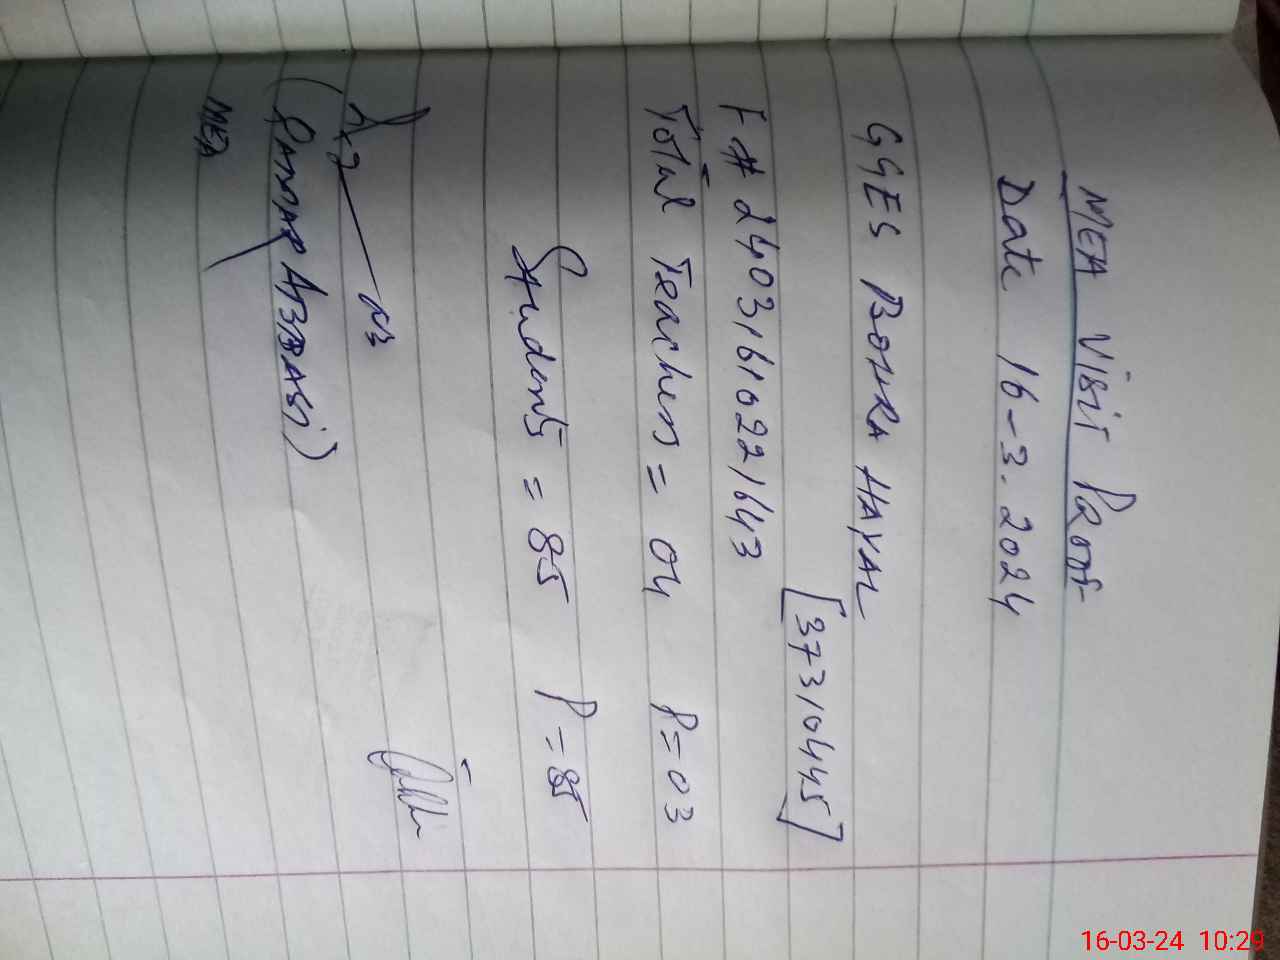 MEA Visit Proof
Date 16-3.2024
GGES BOHRA HAYAL
[37310445]
F# 24031610221643
Total Teachers = 04 P=03
Students = 85 P=85
ABBASI)
MEA
16-03-24 10:29